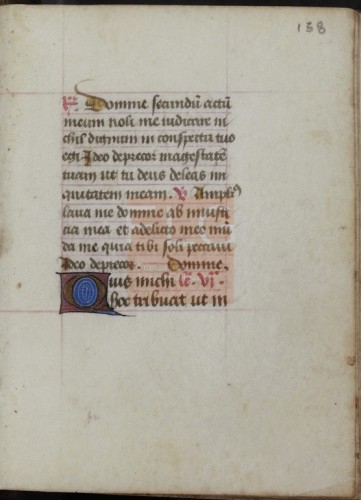 138
R. Domine secundū actū
meum noli me iudicare ni
chil dignum in conspectu tuo
egi Ideo deprecor magestatē
tuam ut tu deus deleas ini
quitatem meam. V. Ampliꝰ
laua me domine ab iniusti
cia mea et a delicto meo mū
da me quia tibi soli peccaui
Ideo deprecor. Domine.
Quis michi lc̄. vi.
hoc tribuat ut in